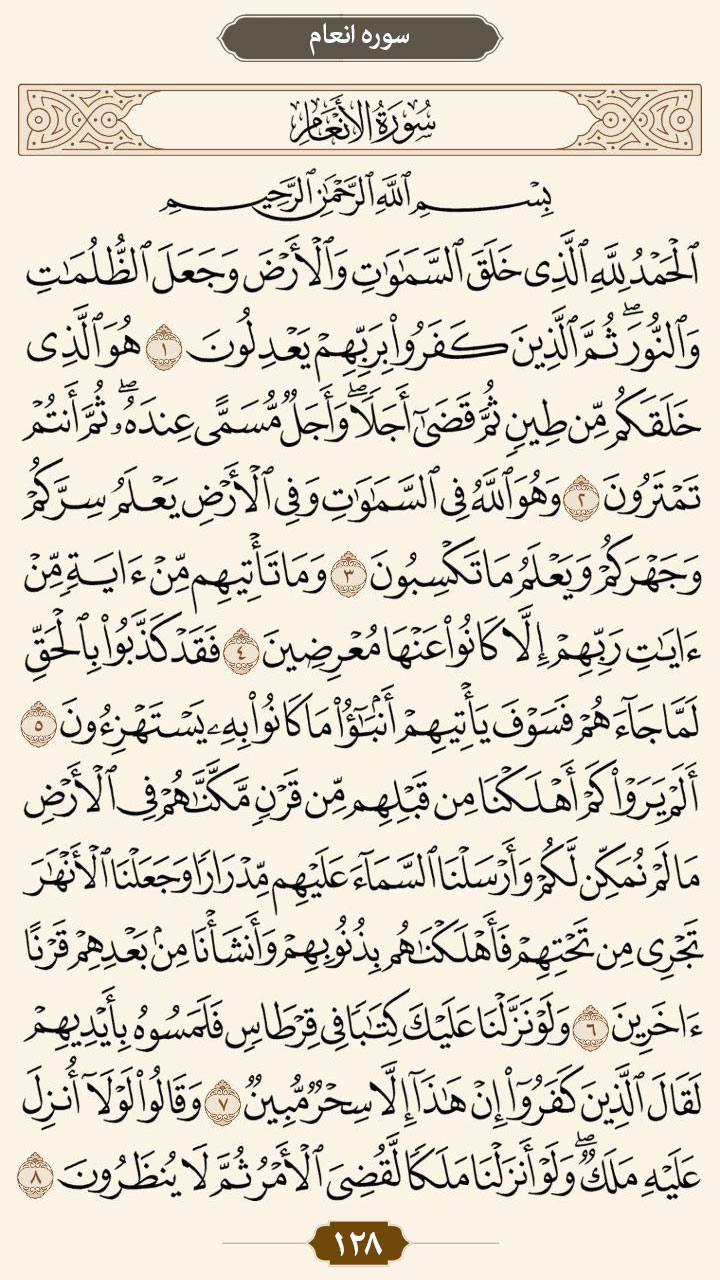 سوره انعام
سُورَةُ الأَنْعَامِ
بِسْمِ ٱللَّهِ ٱلرَّحْمَٰنِ ٱلرَّحِيمِ
ٱلْحَمْدُ لِلَّهِ ٱلَّذِى خَلَقَ ٱلسَّمَٰوَٰتِ وَٱلْأَرْضَ وَجَعَلَ ٱلظُّلُمَٰتِ
وَٱلنُّورَ ۖ ثُمَّ ٱلَّذِينَ كَفَرُوا۟ بِرَبِّهِمْ يَعْدِلُونَ ١ هُوَ ٱلَّذِى
خَلَقَكُم مِّن طِينٍ ثُمَّ قَضَىٰٓ أَجَلًا ۖ وَأَجَلٌ مُّسَمًّى عِندَهُۥ ۖ ثُمَّ أَنتُمْ
تَمْتَرُونَ ٢ وَهُوَ ٱللَّهُ فِى ٱلسَّمَٰوَٰتِ وَفِى ٱلْأَرْضِ يَعْلَمُ سِرَّكُمْ
وَجَهْرَكُمْ وَيَعْلَمُ مَا تَكْسِبُونَ ٣ وَمَا تَأْتِيهِم مِّنْ ءَايَةٍ مِّنْ
ءَايَٰتِ رَبِّهِمْ إِلَّا كَانُوا۟ عَنْهَا مُعْرِضِينَ ٤ فَقَدْ كَذَّبُوا۟ بِٱلْحَقِّ
لَمَّا جَآءَهُمْ فَسَوْفَ يَأْتِيهِمْ أَنۢبَٰٓؤُا۟ مَا كَانُوا۟ بِهِۦ يَسْتَهْزِءُونَ ٥
أَلَمْ يَرَوْا۟ كَمْ أَهْلَكْنَا مِن قَبْلِهِم مِّن قَرْنٍ مَّكَّنَّٰهُمْ فِى ٱلْأَرْضِ
مَا لَمْ نُمَكِّن لَّكُمْ وَأَرْسَلْنَا ٱلسَّمَآءَ عَلَيْهِم مِّدْرَارًا وَجَعَلْنَا ٱلْأَنْهَٰرَ
تَجْرِى مِن تَحْتِهِمْ فَأَهْلَكْنَٰهُم بِذُنُوبِهِمْ وَأَنشَأْنَا مِنۢ بَعْدِهِمْ قَرْنًا
ءَاخَرِينَ ٦ وَلَوْ نَزَّلْنَا عَلَيْكَ كِتَٰبًا فِى قِرْطَاسٍ فَلَمَسُوهُ بِأَيْدِيهِمْ
لَقَالَ ٱلَّذِينَ كَفَرُوٓا۟ إِنْ هَٰذَآ إِلَّا سِحْرٌ مُّبِينٌ ٧ وَقَالُوا۟ لَوْلَآ أُنزِلَ
عَلَيْهِ مَلَكٌ ۖ وَلَوْ أَنزَلْنَا مَلَكًا لَّقُضِىَ ٱلْأَمْرُ ثُمَّ لَا يُنظَرُونَ ٨
١٢٨